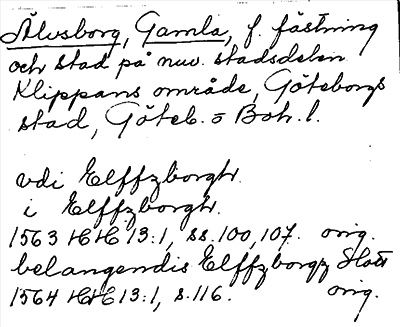 Älvsborg, Gamla, f. fästning
och stad på nuv. stadsdelen
Klippans område, Göteborgs
stad, Göteb. o Boh. l.
vdi Elffzborgh.
i Elffzborgh.
1563 HH 13:1, ss. 100, 107. orig.
belangendis Elffzborgz Slott
1564 HH 13:1, s. 116. orig.